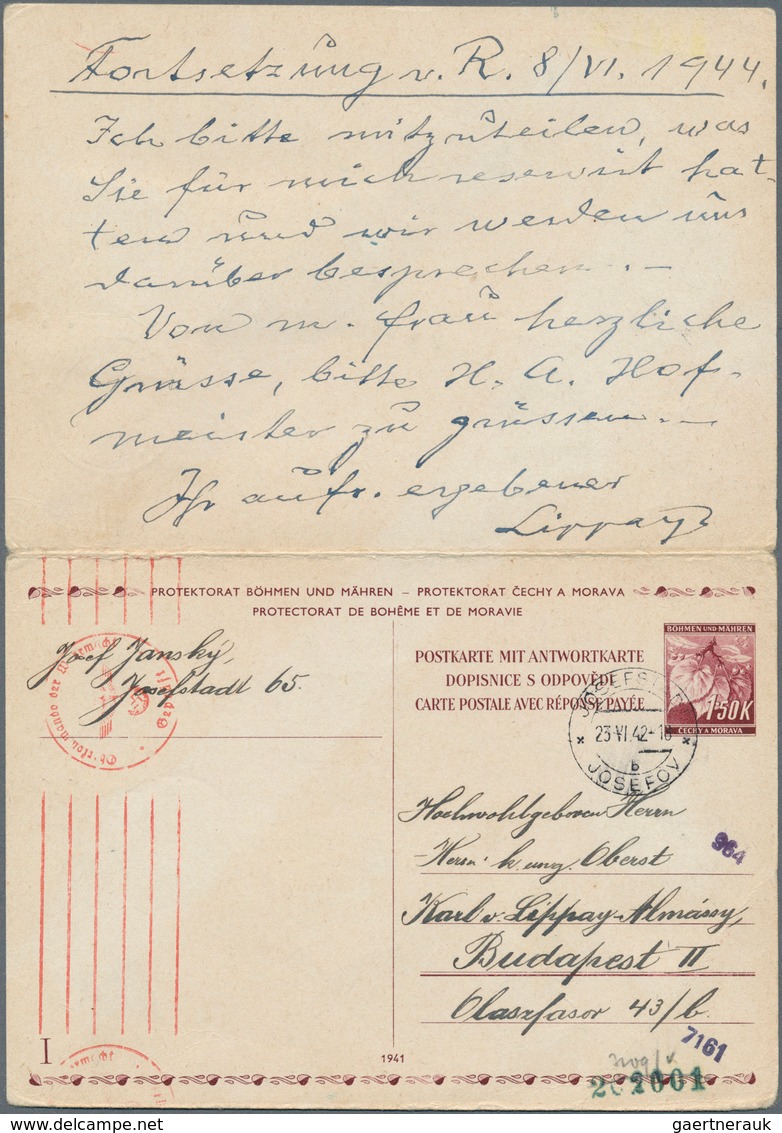 Fortsetzung v. R. 8/VI. 1944.
Ich bitte mitzuteilen, was
Sie für mich reservirt hat-
ten und wir werden uns
darüber besprechen. —
Von m. Frau herzliche
Grüsse, bitte H. A. Hof-
meister zu grüssen. —
Ihr aufr. ergebener
Lippay
PROTEKTORAT BÖHMEN UND MÄHREN – PROTEKTORAT ČECHY A MORAVA
PROTECTORAT DE BOHÊME ET DE MORAVIE
Josef Janský,
Josefstadt 65.
Oberkommando der Wehrmacht
Geprüft
POSTKARTE MIT ANTWORTKARTE
DOPISNICE S ODPOVĚDÍ
CARTE POSTALE AVEC RÉPONSE PAYÉE
BÖHMEN UND MÄHREN
1·50K
ČECHY A MORAVA
23·VI.42-
b
JOSEFOV
Hochwohlgeboren Herrn
Herrn k. ung. Oberst
Karl v. Lippay-Almássy,
Budapest II
Olaszfasor 43/b.
964
7161
I
1941
2001
gaertnerauk